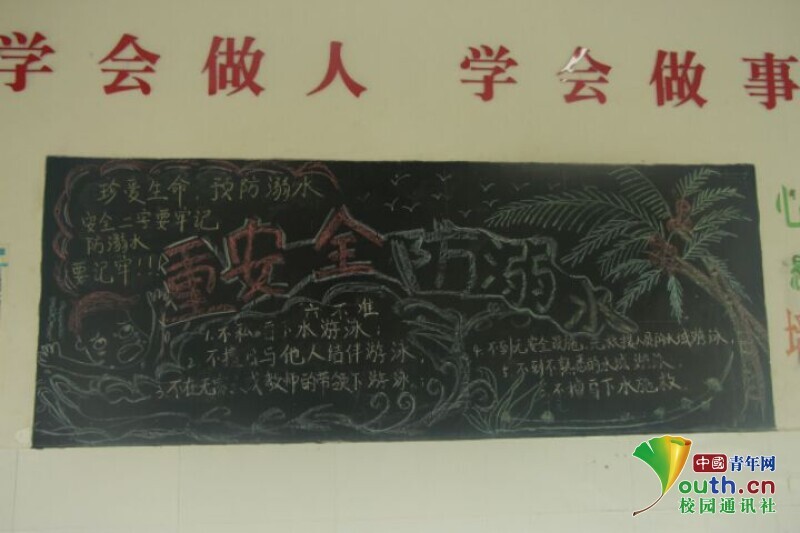 学会做人 学会做事
珍爱生命 预防溺水
安全二字要牢记
防溺水
要记牢!!!
重安全防溺水
六不准
1.不私自 水游泳;
2.不擅 与他人结伴游泳;
3.不在无 教师的带领下游泳;
4.不到无安全设施、无救 人员的水域游泳;
5.不到不熟悉的水域游泳;
不擅自下水施救
心
中国青年网
Youth.cn
校园通讯社